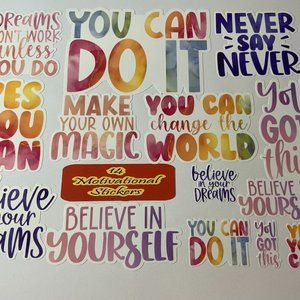 DREAMS
DON'T WORK
unless
YOU DO
YOU CAN
DO IT
NEVER
SAY
NEVER
YES
YOU
CAN
MAKE
YOUR OWN
MAGIC
YOU CAN
change the
WORLD
You
GOT
this!
14
Motivational
Stickers
believe
in your
DREAMS
believe
in your
DREAMS
BELIEVE IN
YOURSELF
BELIEVE IN
YOURSELF
YOU CAN
DO IT
YOU
GOT
this!
YES
YOU
CAN